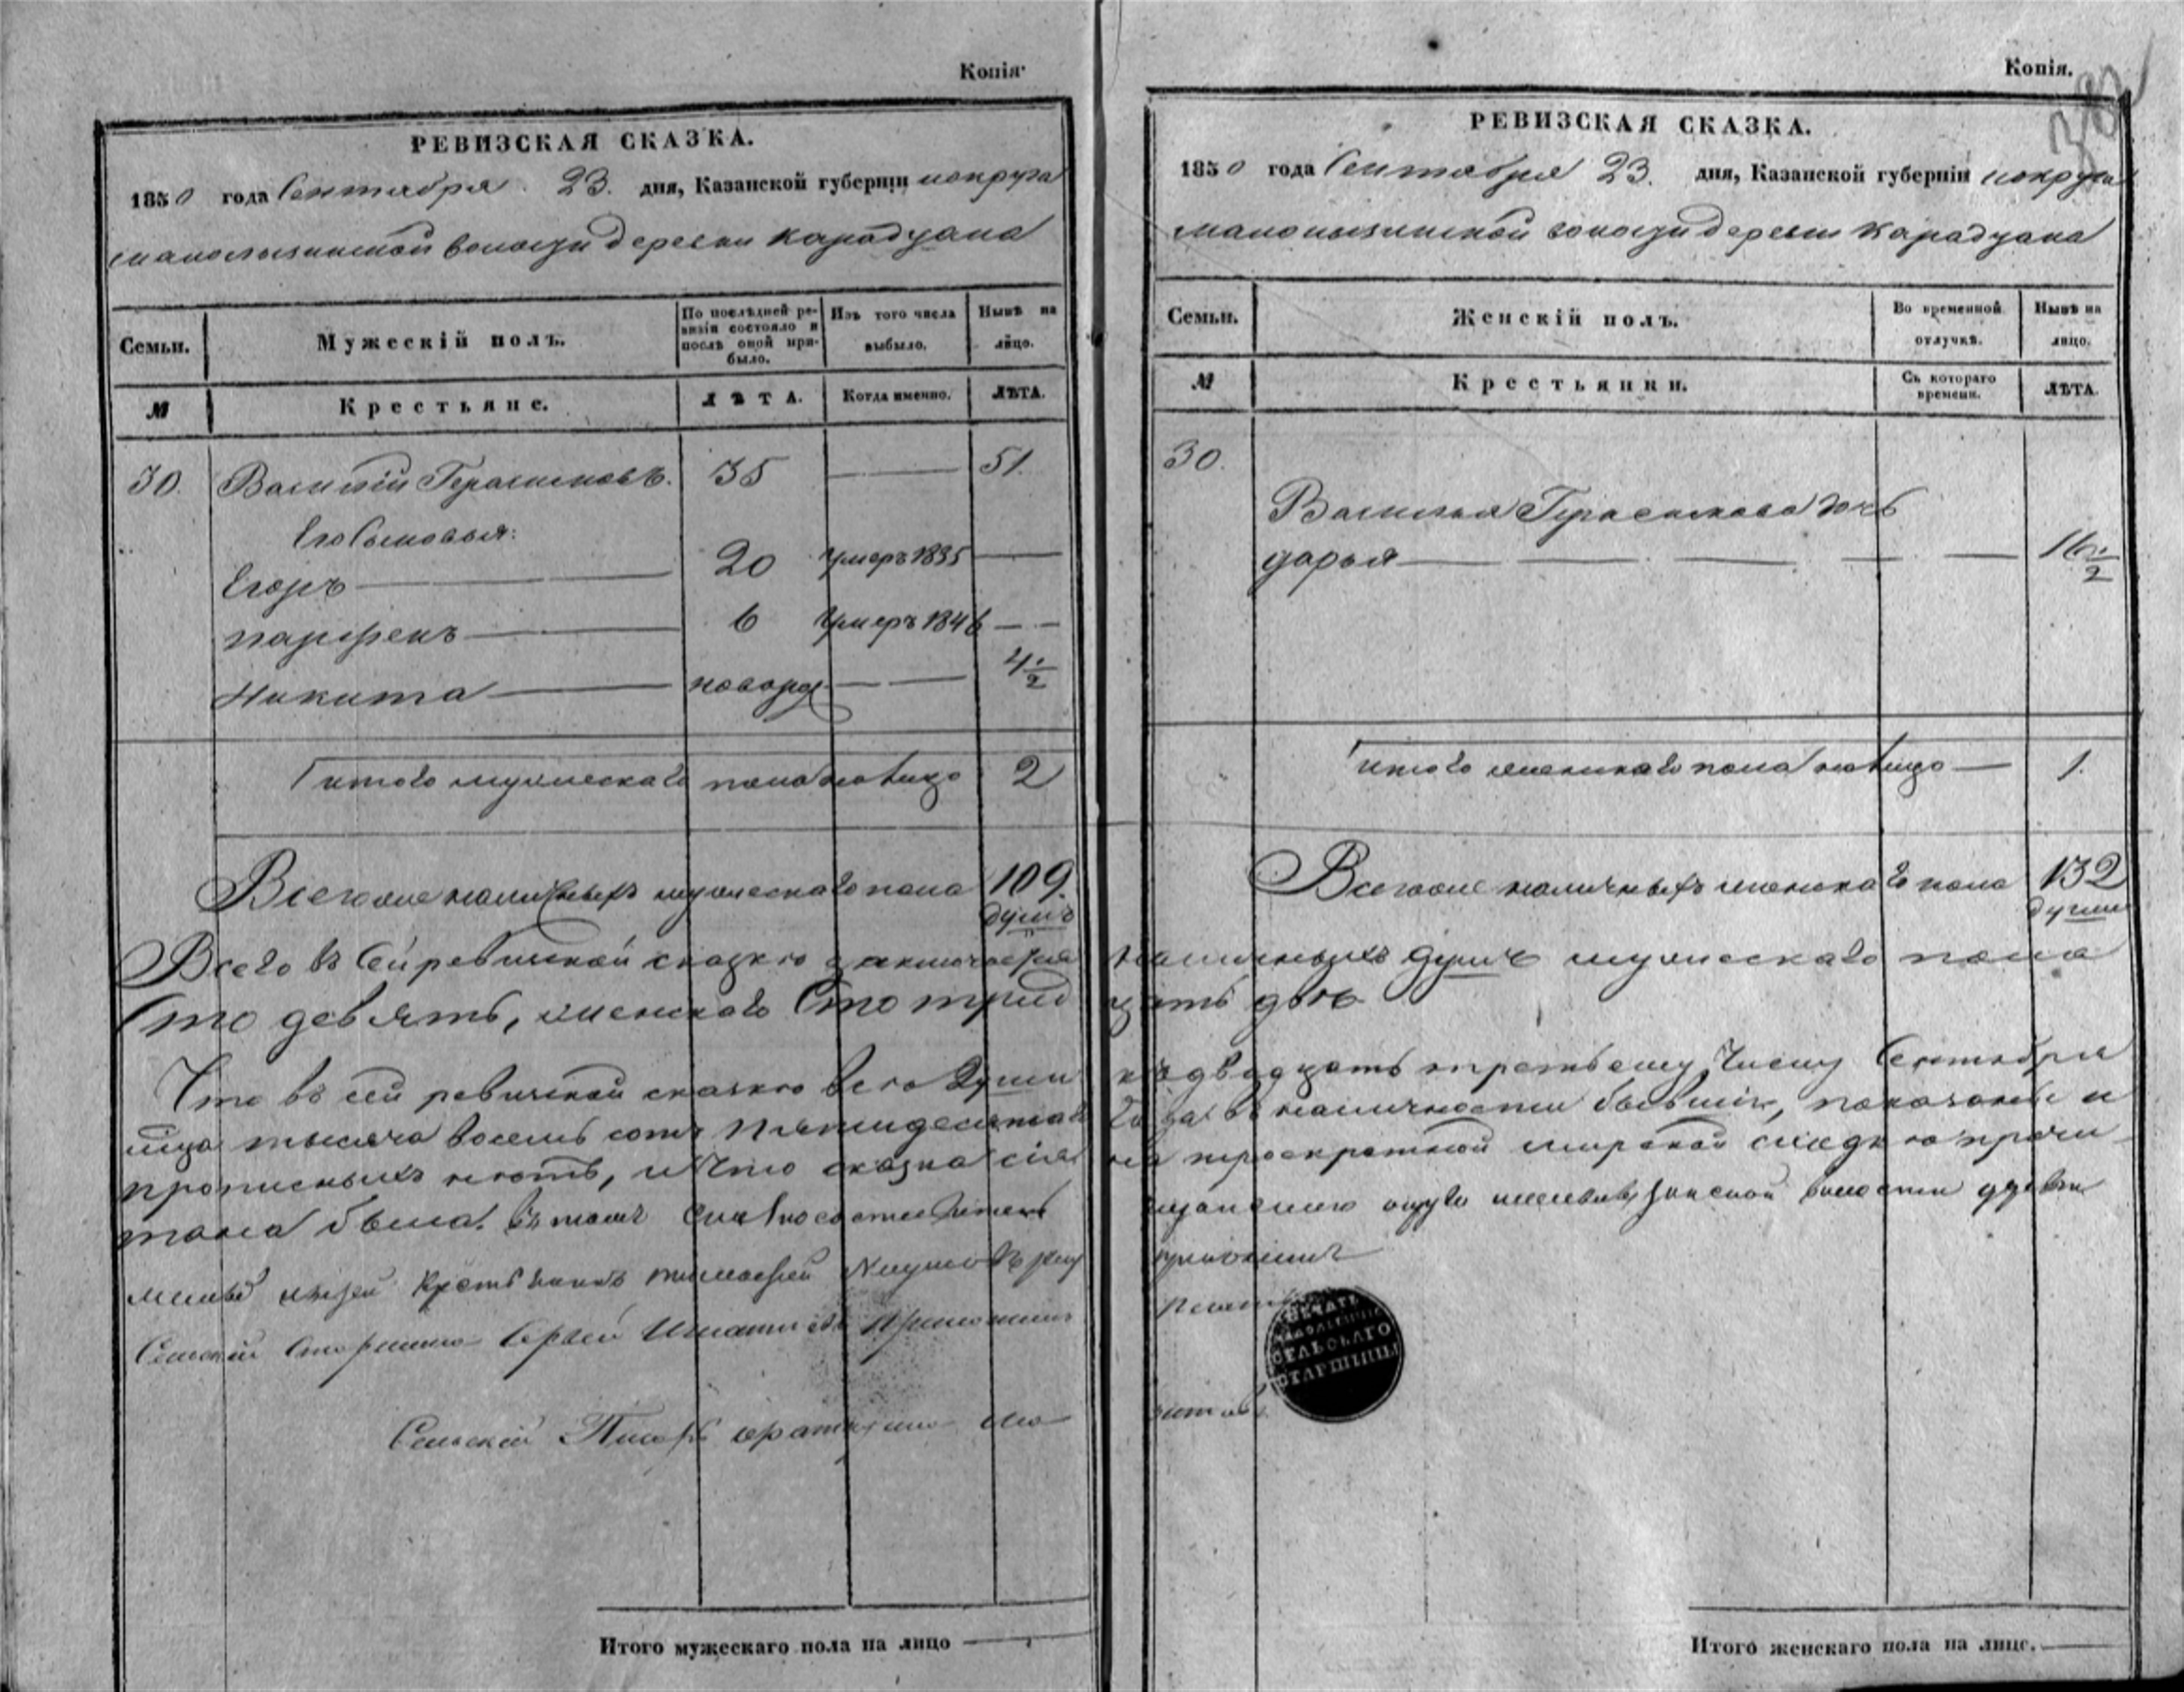 Копія
РЕВИЗСКАЯ СКАЗКА.
1850 года Сентября 23. дня, Казанской губерніи и округа
малолызинской волости деревни Карадуана
Семьи. Мужескій полъ. По послѣдней ревизіи состояло и послѣ оной прибыло. Изъ того числа выбыло. Нынѣ на лицо.
№ Крестьяне. ЛѢТА. Когда именно. ЛѢТА.
30. Василій Герасимовъ. 35 51.
Его Сыновья:
Егоръ 20 Умеръ 1835
парфенъ 6 Умеръ 1846
Никита новорж 4 1/2
итого мужескаго пола на лицо 2
Всего же наличныхъ мужескаго пола 109.
душъ
Копія.
РЕВИЗСКАЯ СКАЗКА.
1850 года Сентября 23. дня, Казанской губерніи и округа
малолызинской волости деревни Карадуана
Семьи. Женскій полъ. Во временной отлучкѣ. Нынѣ на лицо.
№ Крестьянки. Съ котораго времени. ЛѢТА.
30.
Василья Герасимова дочь
дарья 16 1/2
итого женскаго пола на лицо 1.
Всего же наличныхъ женскаго пола 132
души
Всего въ Сей ревизской сказкѣ заключается наличныхъ душъ мужескаго пола
Сто девять, женскаго Сто тридцать двѣ
Что въ сей ревизской сказкѣ всѣ души къ двадцать третьему Числу Сентября
тысяча восемь сотъ пятидесятаго года въ наличности бывшіе, показаны и
прописныхъ нѣтъ, и Что сказка сія на троекратной мирской сходкѣ прочи
тана была. въ томъ
Крестьянинъ тимофей
Сельскій Старшина Сергѣй Игнатьевъ приложилъ печать
ПЕЧАТЬ
СЕЛЬСКАГО
СТАРШИНЫ
Сельскій Писарь
Итого мужескаго пола на лицо
Итого женскаго пола на лицо.